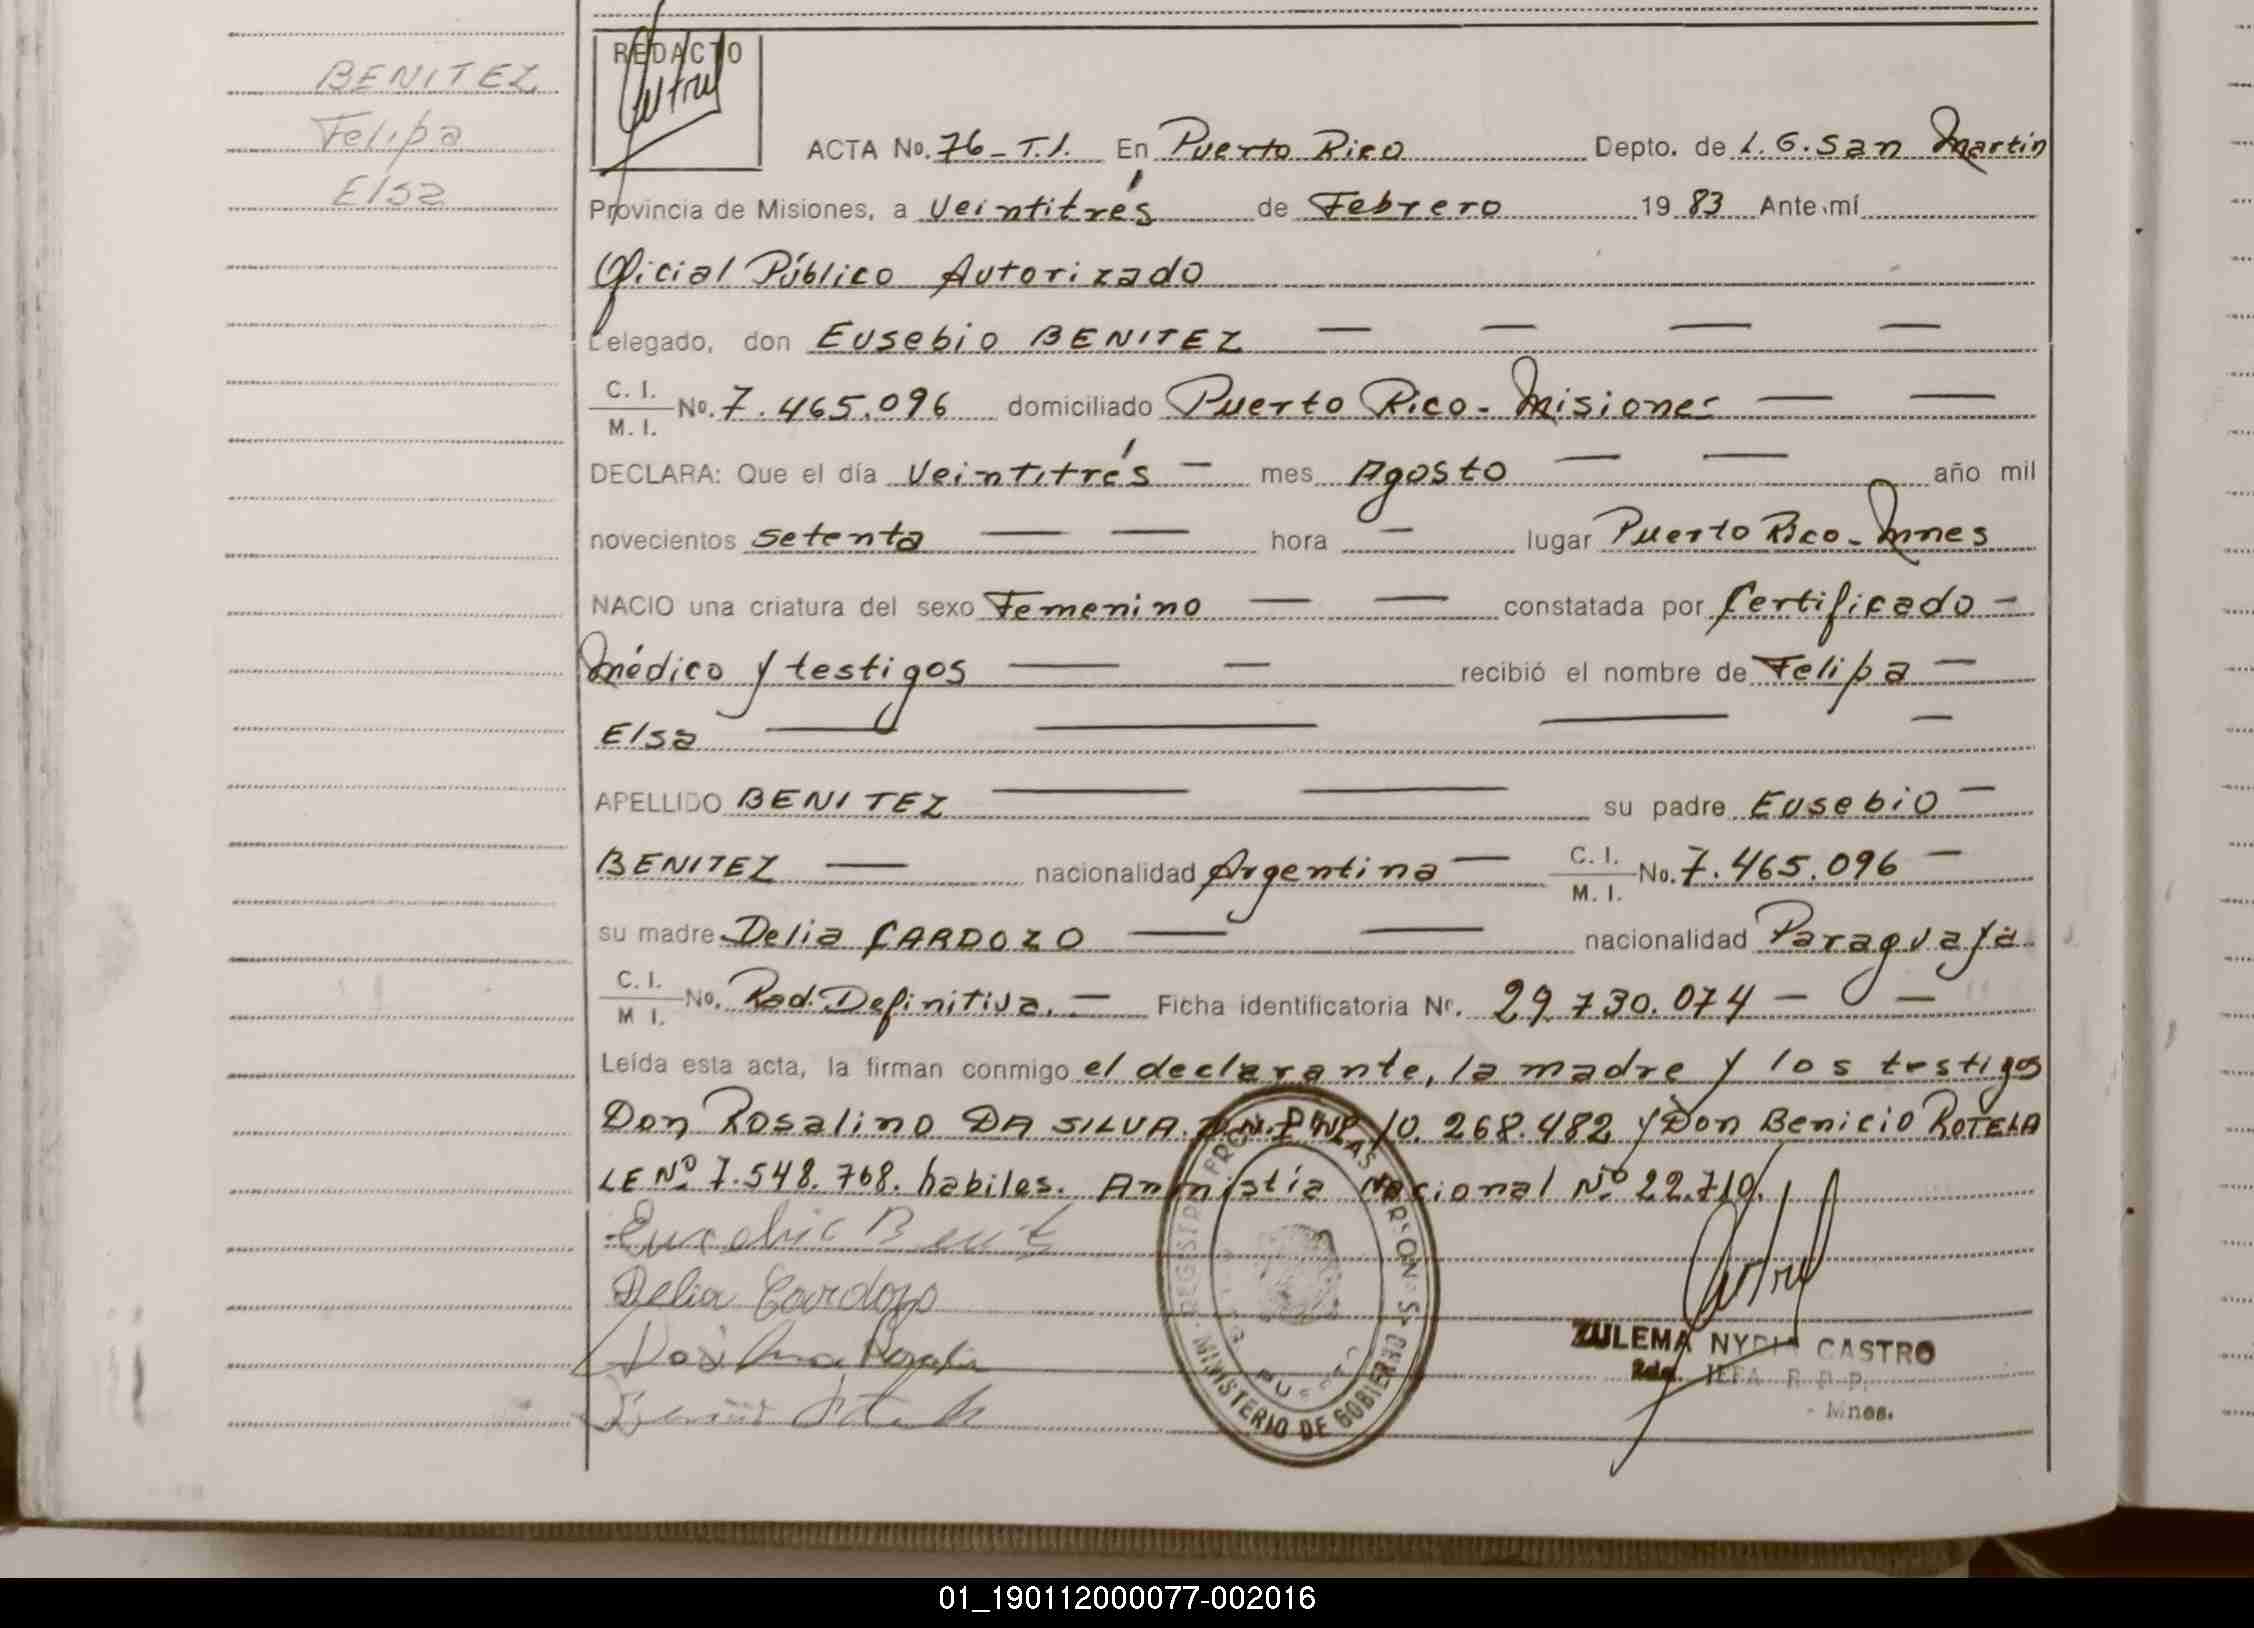 BENITEZ
Felipa
Elsa
REDACTO
ACTA No. 76-T.I. En Puerto Rico Depto. de L.G. San Martín
Provincia de Misiones, a Veintitrés de Febrero 19 83 Ante mí
Oficial Público Autorizado
Delegado, don Eusebio BENITEZ — — — —
C. I. / M. I. No. 7.465.096 domiciliado Puerto Rico - Misiones — —
DECLARA: Que el día Veintitrés — mes Agosto — — año mil
novecientos Setenta — — hora — lugar Puerto Rico - Mnes
NACIO una criatura del sexo Femenino — — constatada por Certificado —
Médico y testigos — — recibió el nombre de Felipa —
Elsa — — — —
APELLIDO BENITEZ — — su padre Eusebio —
BENITEZ — nacionalidad Argentina — C. I. / M. I. No. 7.465.096 —
su madre Delia CARDOZO — — nacionalidad Paraguaya
C. I. / M I. No. Rad. Definitiva. — Ficha identificatoria Nº. 29.730.074 — —
Leída esta acta, la firman conmigo el declarante, la madre y los testigos
Don Rosalino DA SILVA. 10.268.482 y Don Benicio ROTELA
LE Nº 7.548.768. habiles. Amnistía Nacional Nº 22.710.
Eusebio Benit
Delia Cardozo
REGISTRO PROV. DE LAS PERSONAS
MINISTERIO DE GOBIERNO
PUERTO
ZULEMA NYDIA CASTRO
JEFA R. P. P.
- Mnes.
01_190112000077-002016